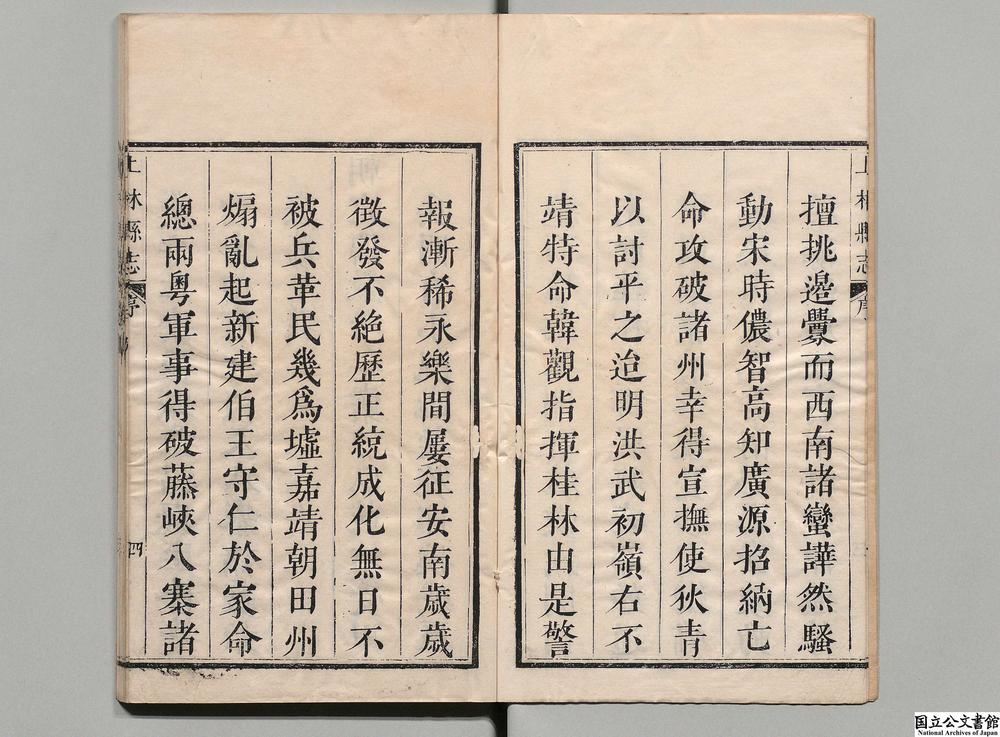 上林縣志
序
擅挑邊釁而西南諸蠻譁然騷
動宋時儂智高知廣源招納亡
命攻破諸州幸得宣撫使狄青
以討平之迨明洪武初嶺右不
靖特命韓觀指揮桂林由是警
報漸稀永樂間屢征安南歲歲
徵發不絕歷正統成化無日不
被兵革民幾爲墟嘉靖朝田州
煽亂起新建伯王守仁於家命
總兩粤軍事得破藤峽八寨諸
上林縣志
序
四
国立公文書館
National Archives of Japan